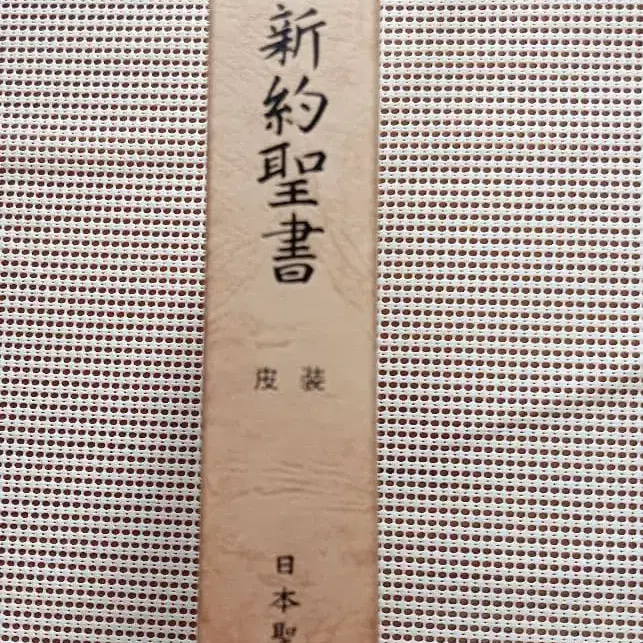 新約聖書
皮装
日本聖